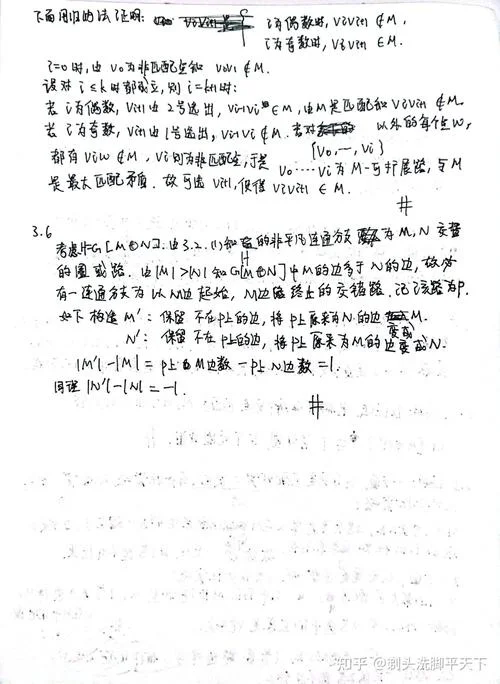 下面用归纳法证明: { i为偶数时, vivi+1 ∉ M,
i为奇数时, vivi+1 ∈ M.
i=0时, 由v0为非匹配点知 v0v1 ∉ M.
设对 i ≤ k 时都成立, 则 i=k+1时:
若i为偶数, vi+1由2号选出, vi-1vi ∈ M, 由M是匹配知 vivi+1 ∉ M.
若i为奇数, vi+1由1号选出, vi-1vi ∉ M. 若对 {v0,…,vi} 以外的每个点w,
都有viw ∉ M, vi则为非匹配点, 于是 v0……vi为M-可扩展路, 与M
是最大匹配矛盾. 故可选vi+1, 使得vivi+1 ∈ M.
#
3.6
考虑H=G[M⊕N]. 由3.2.(1)知H的非平凡连通分支为M,N交替
的圈或路. 由|M|>|N|知G[M⊕N]中M的边多于N的边, 故必
有一连通分支为以M边起始, M边终止的交错路. 记该路为P.
如下构造 M': 保留不在P上的边, 将P上原来为N的边变成M.
N': 保留不在P上的边, 将P上原来为M的边变成N.
|M'|-|M| = P上M边数 - P上N边数 = 1.
同理 |N'|-|N| = -1.
#
知乎 @剃头洗脚平天下